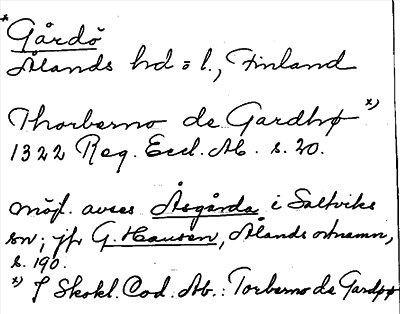 * Gårdö
Ålands hd = l., Finland
Thorberno de Gardhø *)
1322 Reg. Eccl. Ab. s. 20.
Möjl. avses Åsgårda i Saltviks
sn; jfr G. Hausen, Ålands ortnamn,
s. 190.
*) I Skokl. Cod. Ab.: Torberno de Gardþø